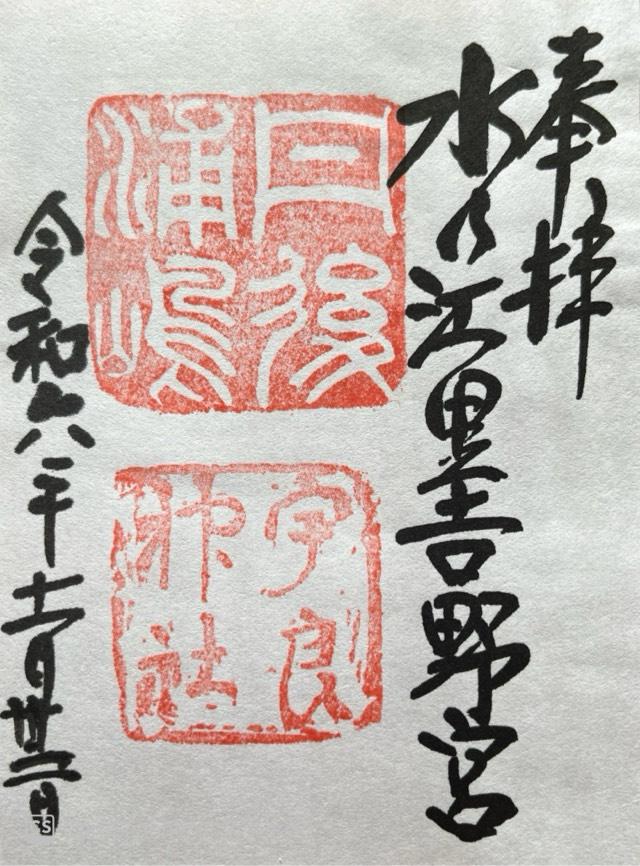 奉拝
水乃江墨吉野宮
丹後
浦嶋
宇良
神社
令和六年十一月廿三日
SS